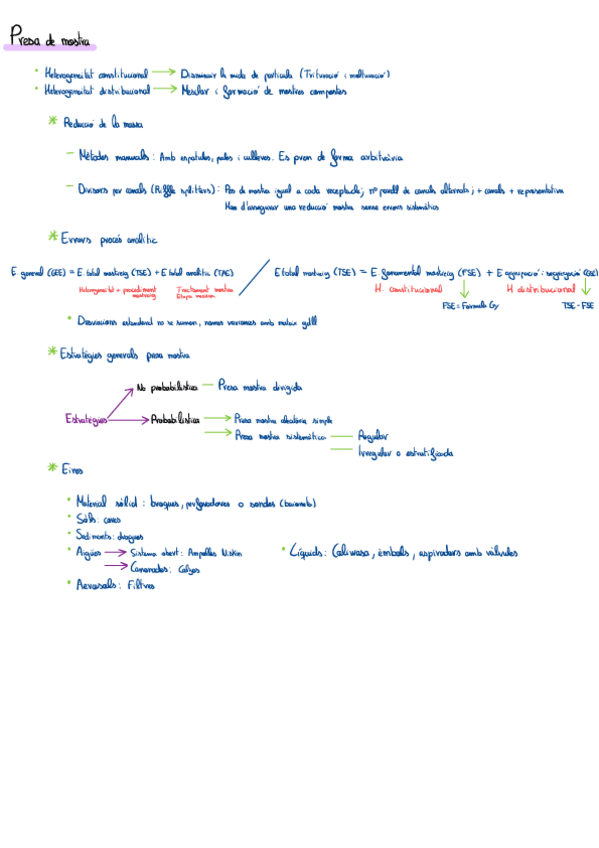 Presa de mostra
• Heterogeneitat constitucional → Disminuir la mida de partícula (Trituració i molturació)
• Heterogeneitat distribucional → Mesclar i formació de mostres compostes
* Reducció de la massa
– Mètodes manuals: Amb espàtules, pales i culleres. Es pren de forma arbitrària
– Divisors per canals (Riffle splitters): Pes de mostra igual a cada receptacle; nº parell de canals alternats; + canals + representativa
Han d'assegurar una reducció mostra sense errors sistemàtics
* Errors procés analític
E general (GEE) = E. total mostreig (TSE) + E total analític (TAE) / E total mostreig (TSE) = E. fonamental mostreig (FSE) + E agrupació i segregació (GSE)
Heterogeneïtat + procediment mostreig
Tractament mostra
Etapa mesura
H. constitucional
H distribucional
FSE = Fórmula Gy
TSE - FSE
• Desviacions estàndard no se sumen, només variances amb mateix gdll
* Estratègies generals presa mostra
No probabilística – Presa mostra dirigida
Estratègies → Probabilística → Presa mostra aleatòria simple
→ Presa mostra sistemàtica — Regular
— Irregular o estratificada
* Eines
• Material sòlid: broques, perforadores o sondes (baioneta)
• Sòls: cores
• Sediments: dragues
• Aigües → Sistema obert: Ampolles Niskin
→ Canonades: Calzes
• Líquids: Coliwasa, èmbols, aspiradors amb vàlvules
• Aerosols: Filtres